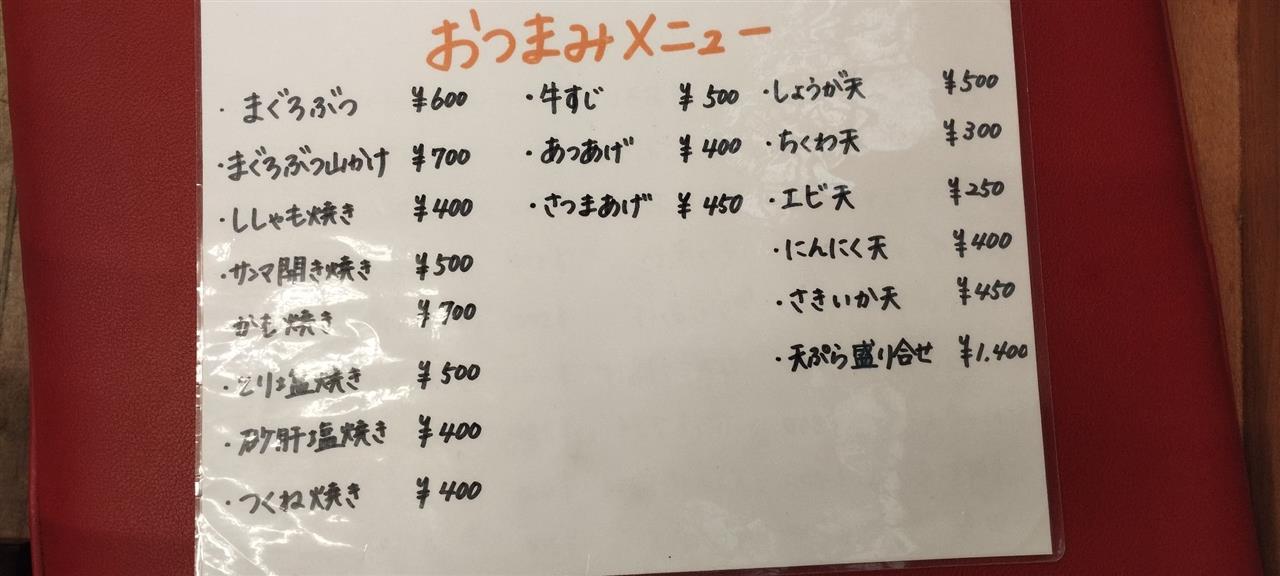 おつまみメニュー
・まぐろぶつ ¥600
・まぐろぶつ山かけ ¥700
・ししゃも焼き ¥400
・サンマ開き焼き ¥500
かも焼き ¥700
・とり塩焼き ¥500
・砂肝塩焼き ¥400
・つくね焼き ¥400
・牛すじ ¥500
・あつあげ ¥400
・さつまあげ ¥450
・しょうが天 ¥500
・ちくわ天 ¥300
・エビ天 ¥250
・にんにく天 ¥400
・さきいか天 ¥450
・天ぷら盛り合せ ¥1.400